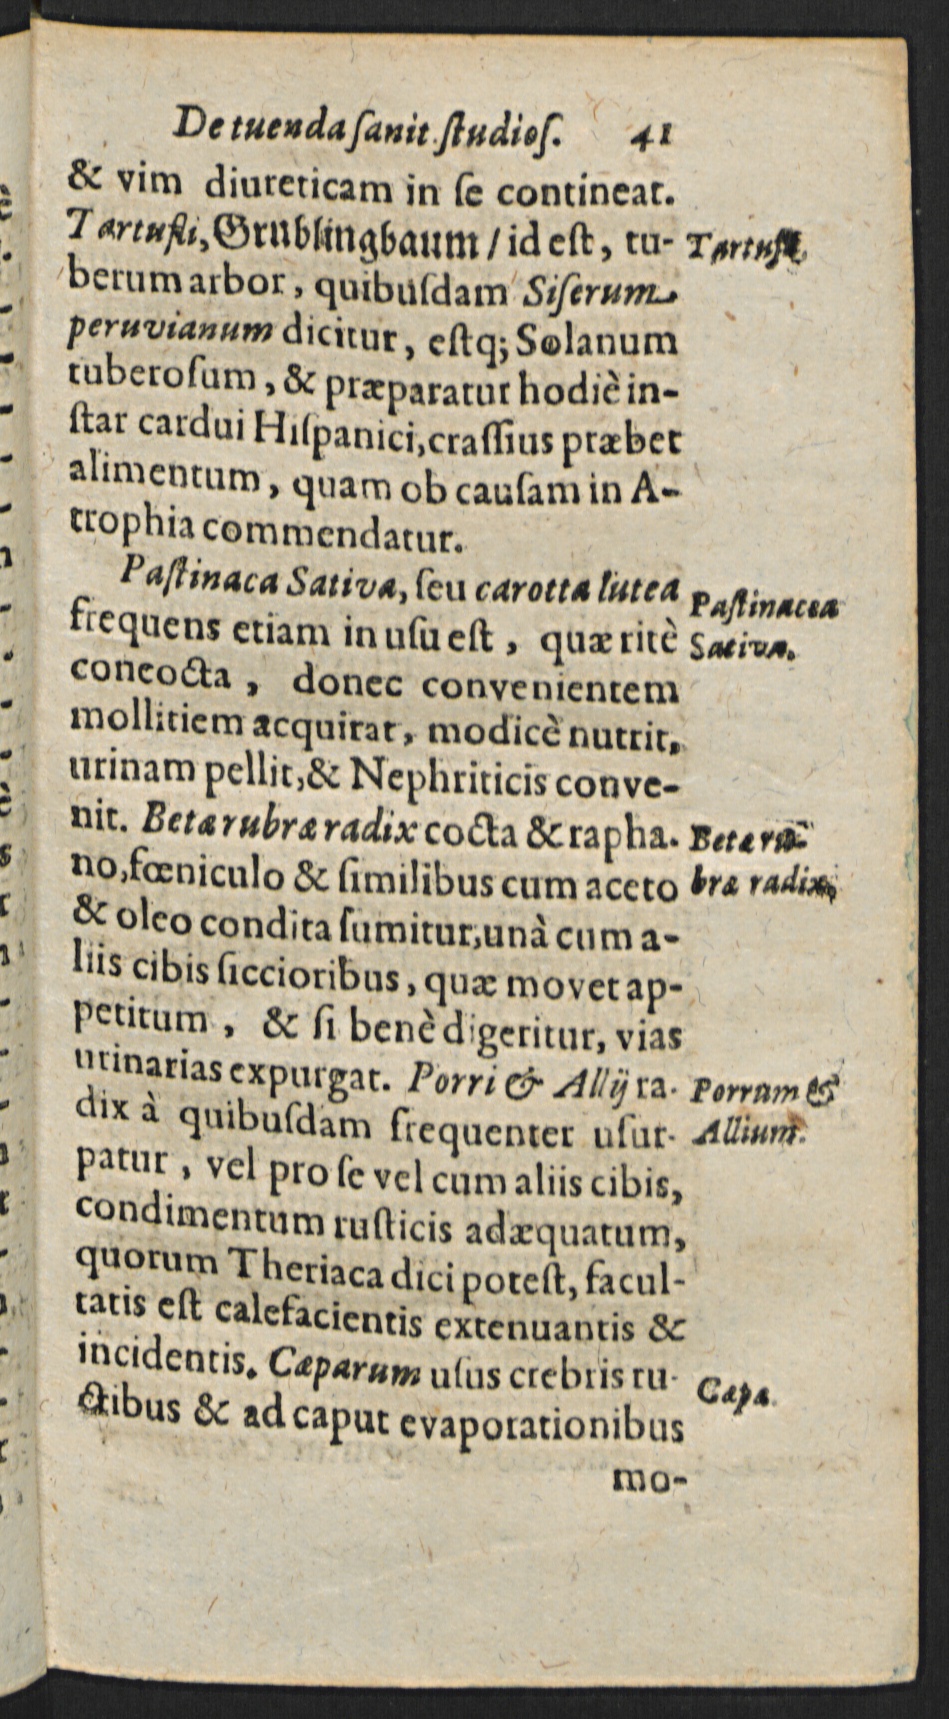 De tuenda ſanit. ſtudioſ. 41
& vim diureticam in ſe contineat.
Tartufli, Grüblingbaum / id eſt, tu- Tartufli.
berum arbor, quibuſdam Siſerum
peruvianum dicitur, eſtq; Solanum
tuberoſum, & præparatur hodiè in-
ſtar cardui Hiſpanici, craſſius præbet
alimentum, quam ob cauſam in A-
trophia commendatur.
Paſtinaca Sativa, ſeu carotta lutea Paſtinacea
frequens etiam in uſu eſt, quæ ritè Sativa.
concocta, donec convenientem
mollitiem acquirat, modicè nutrit,
urinam pellit, & Nephriticis conve-
nit. Betæ rubræ radix cocta & rapha- Betæ ru-
no, fœniculo & ſimilibus cum aceto bræ radix.
& oleo condita ſumitur, unà cum a-
liis cibis ſiccioribus, quæ movet ap-
petitum, & ſi benè digeritur, vias
urinarias expurgat. Porri & Allij ra- Porrum &
dix à quibuſdam frequenter uſur- Allium.
patur, vel pro ſe vel cum aliis cibis,
condimentum ruſticis adæquatum,
quorum Theriaca dici poteſt, facul-
tatis eſt calefacientis extenuantis &
incidentis. Cæparum uſus crebris ru- Cæpa.
ctibus & ad caput evaporationibus
mo-